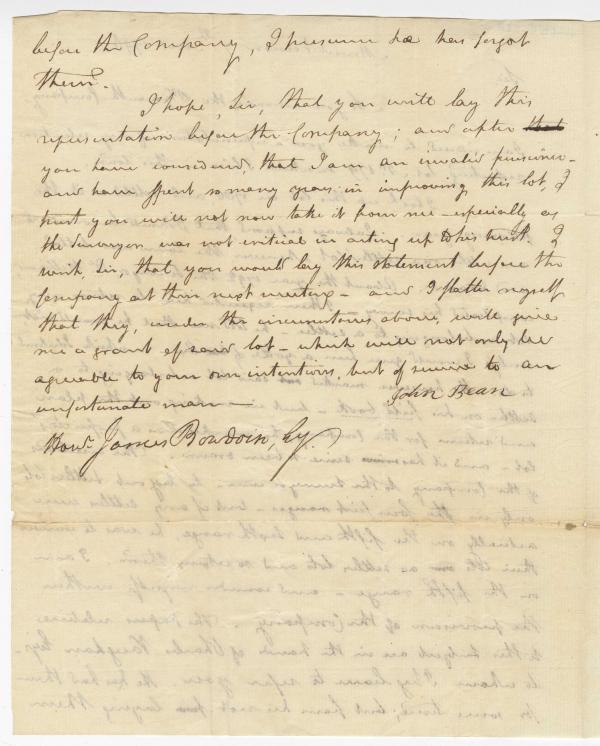 before the Company, I presume he has forgot
them.
I hope, Sir, that you will lay this
representation before the Company; and after that
you have considered, that I am an invalid pensioner -
and have spent so many years in improving this lot, I
trust you will not now take it from me - especially as
the Surveyor was not critical in acting up to his trust. I
wish, Sir, that you would lay this statement before the
Company at their next meeting - and I flatter myself
that they, under the circumstances above, will give
me a grant of said lot - which will not only be
agreeable to your own intentions, but of service to an
unfortunate man -
John Bean
Honl. James Bowdoin, Esq.